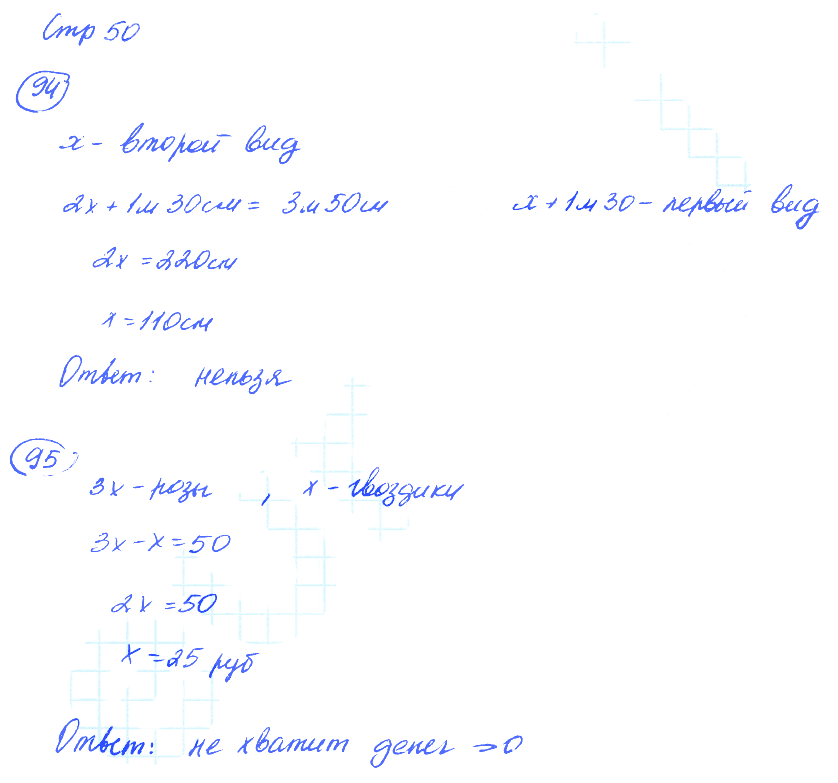 Стр 50
94
x - второй вид
2x + 1м 30см = 3м 50см x + 1м 30 - первый вид
2x = 220см
x = 110см
Ответ: нельзя
95
3x - розы , x - гвоздики
3x - x = 50
2x = 50
x = 25 руб
Ответ: не хватит денег => 0